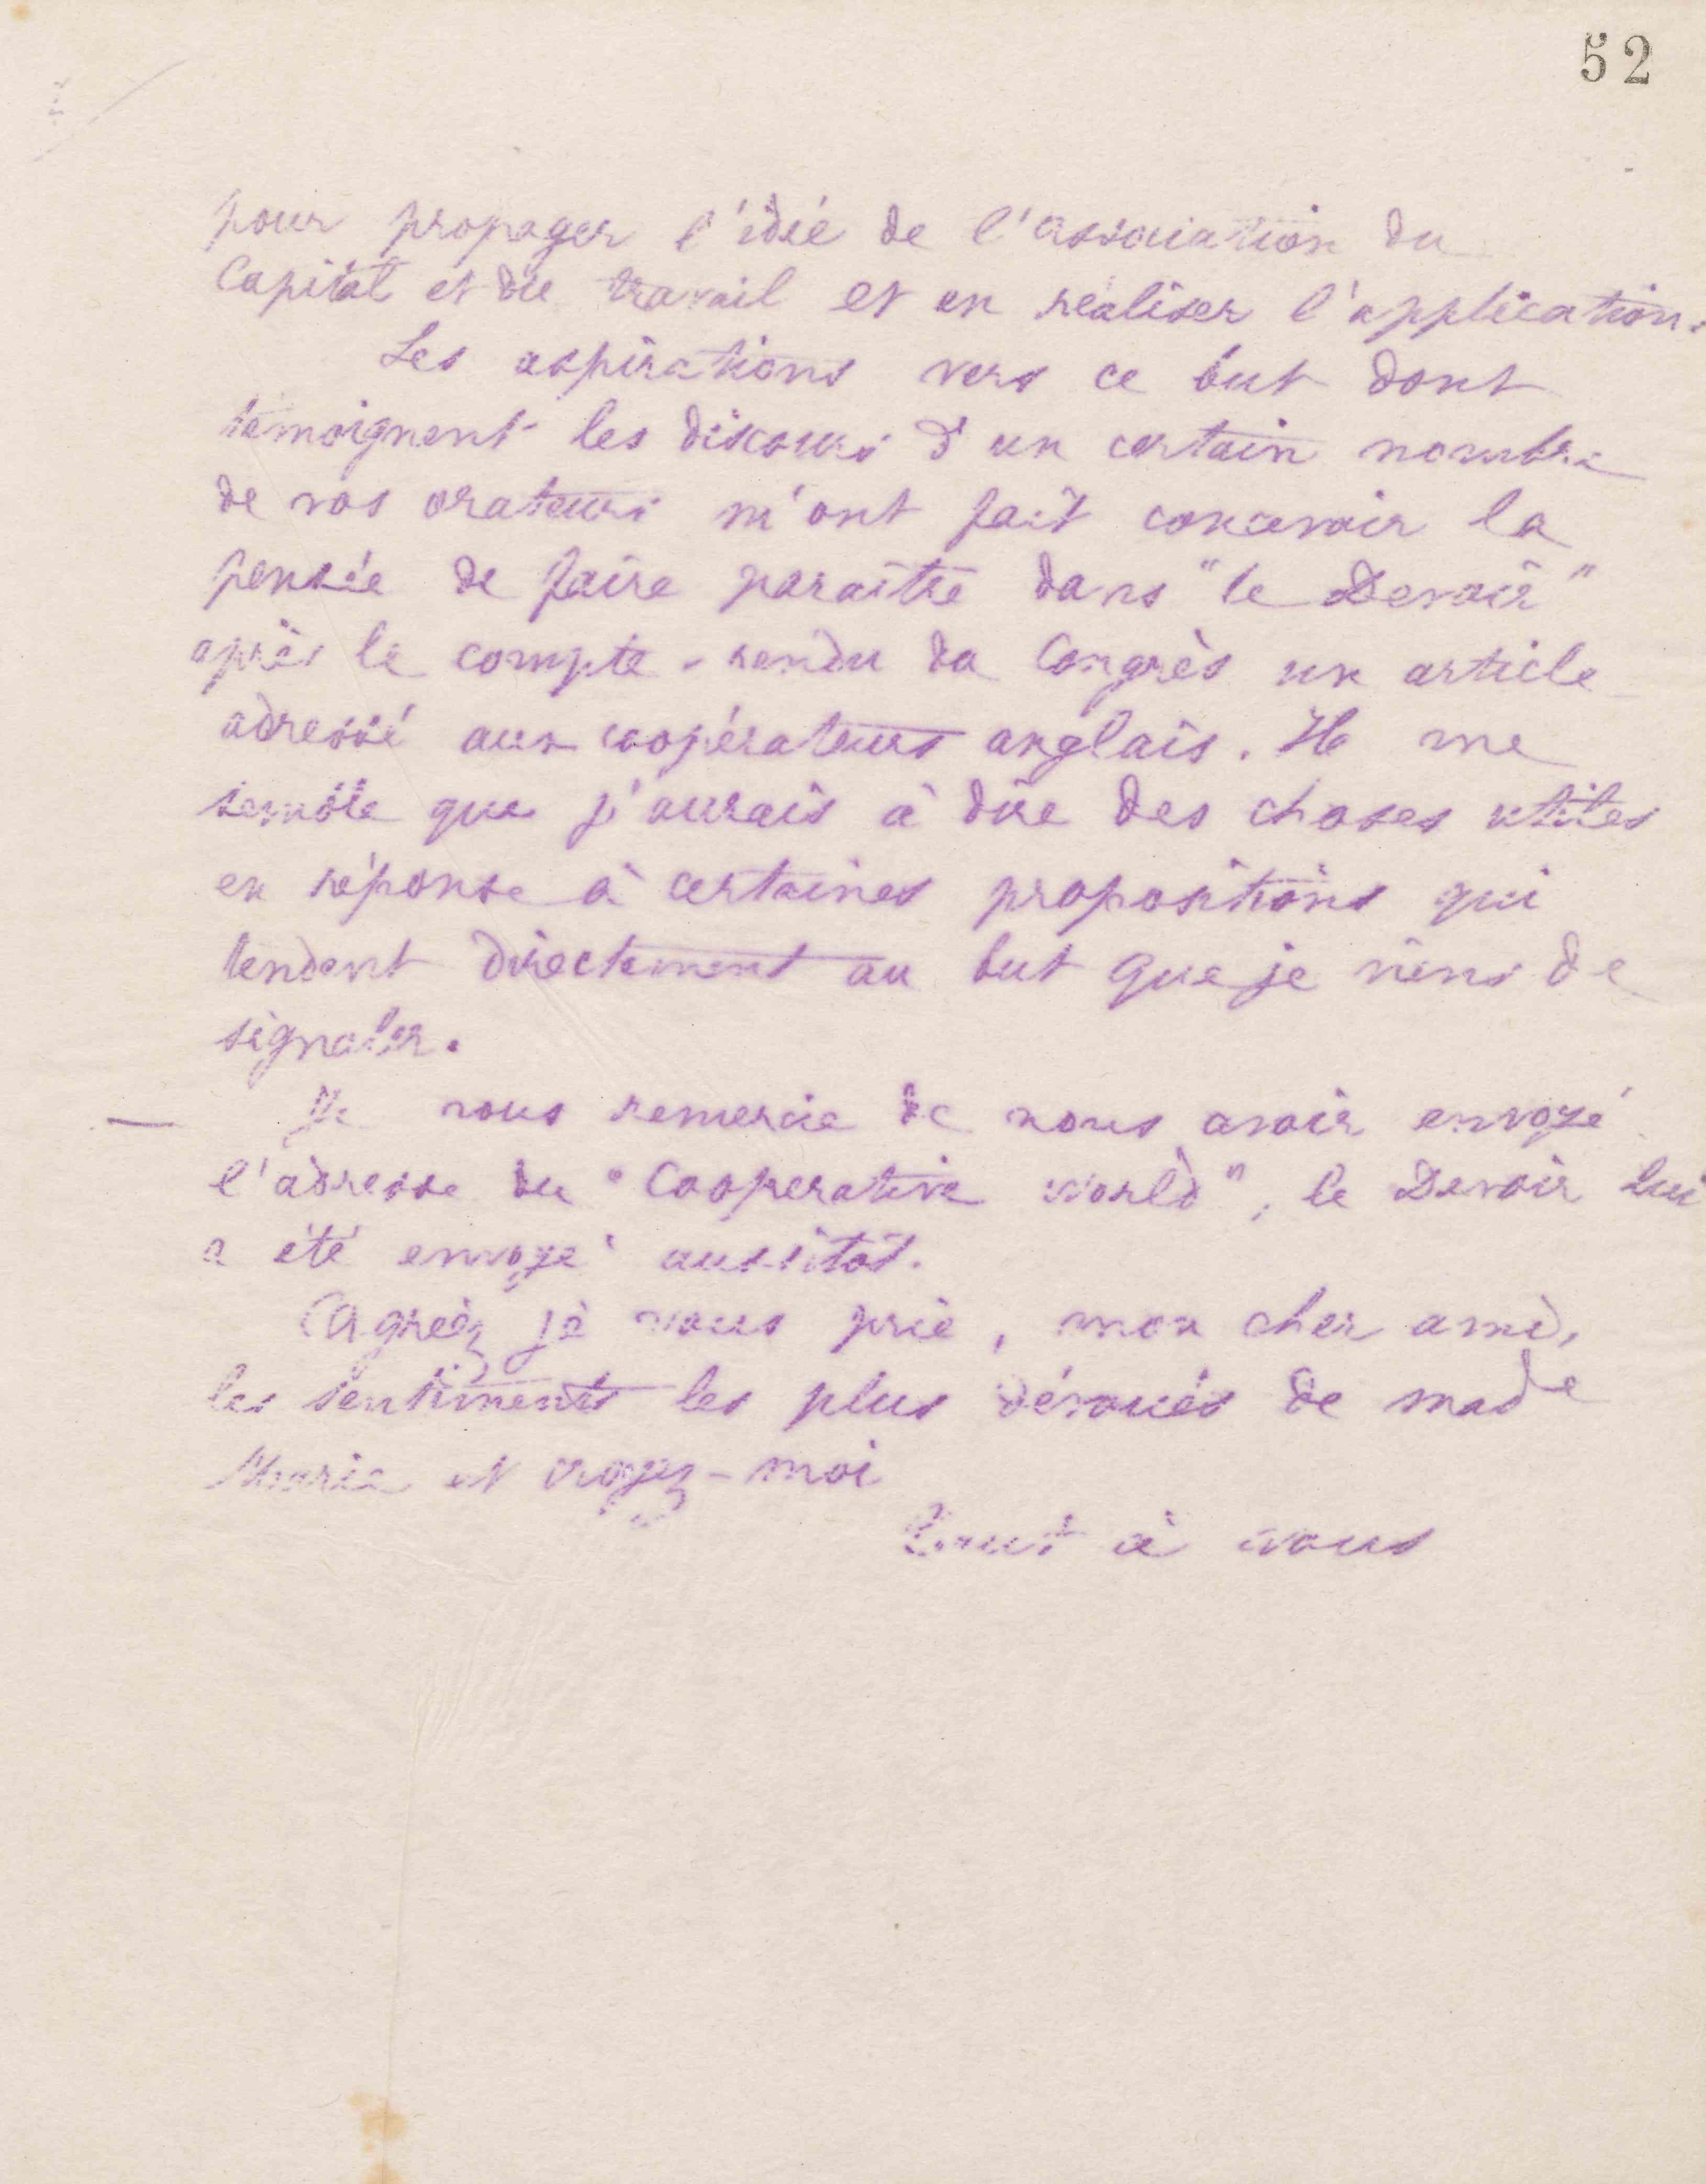 52
pour propager l'idée de l'association du
Capital et du travail et en réaliser l'application.
Les aspirations vers ce but dont
témoignent les discours d'un certain nombre
de vos orateurs m'ont fait concevoir la
pensée de faire paraître dans "le Devoir"
après le compte-rendu du Congrès un article
adressé aux coopérateurs anglais. Il me
semble que j'aurais à dire des choses utiles
en réponse à certaines propositions qui
tendent directement au but que je viens de
signaler.
— Je vous remercie de nous avoir envoyé
l'adresse du "Cooperative world", le Devoir lui
a été envoyé aussitôt.
Agréez je vous prie, mon cher ami,
les sentiments les plus dévoués de made
Marie et croyez-moi
Tout à vous